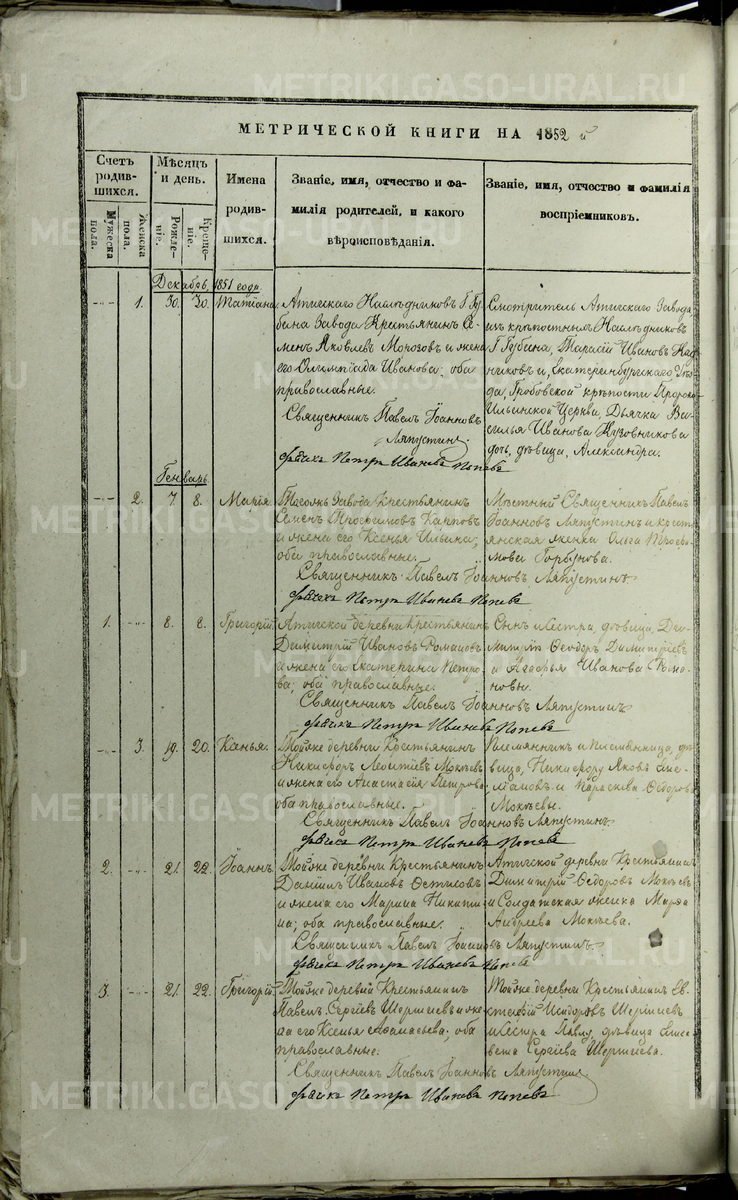 МЕТРИЧЕСКОЙ КНИГИ НА 1852 й
Счет родив-шихся.
Мужеска пола.
Женска пола.
Мѣсяцъ и день.
Рожденіе.
Крещеніе.
Имена родив-шихся.
Званіе, имя, отчество и фа-
милія родителей, и какого
вѣроисповѣданія.
Званіе, имя, отчество и фамилія
воспріемниковъ.
Декабрь, 1851 года
1. 30. 30. Татіана
Атигскаго Наслѣдниковъ Г Гу-
бина Завода Крестьянинъ Се-
менъ Яковлевъ Морозовъ и жена
его Олимпіада Иванова; оба
православные.
Священникъ Павелъ Іоанновъ
Ляпустинъ
Дьячекъ Петръ Ивановъ Поповъ
Смотритель Атигскаго Завода
изъ крѣпостныхъ Наслѣдниковъ
Г Губина, Тарасій Ивановъ
и, Екатеринбургскаго Уѣз-
да, Гробовской крѣпости Пророко
Ильинской Церкви, Дьячка Ва-
силья Иванова Кузовникова
дочь, дѣвица, Александра.
Генварь.
2. 7. 8. Марія.
Завода Крестьянинъ
Семенъ Карповъ
и жена его Ксенья Ильина;
оба православные.
Священникъ Павелъ Іоанновъ Ляпустинъ
Дьячекъ Петръ Ивановъ Поповъ
Мѣстный Священникъ Павелъ
Іоанновъ Ляпустинъ и крест-
янская женка Ольга
Горбунова.
1. 8. 8. Григорій.
Атигской деревни Крестьянинъ
Димитрій Ивановъ Романовъ
и жена его Екатерина Петро-
ва; оба православные.
Священникъ Павелъ Іоанновъ Ляпустинъ
Дьячекъ Петръ Ивановъ Поповъ
Сынъ и Сестра, дѣвица,
Ѳеодоръ Димитріевъ
и Иванова Рома-
новы.
3. 19. 20. Ксенья.
Тойже деревни Крестьянинъ
Никифоръ Леонтіевъ Мокѣевъ
и жена его Анастасія Петрова
оба православные.
Священникъ Павелъ Іоанновъ Ляпустинъ
Дьячекъ Петръ Ивановъ Поповъ
Племянникъ и племянница, дѣ-
вица, Никифору Яковъ
и Параскева Ѳедорова
Мокѣевы.
2. 21. 22. Іоаннъ.
Тойже деревни Крестьянинъ
Даніилъ Ивановъ
и жена его Марина Никити-
на; оба православные.
Священникъ Павелъ Іоанновъ Ляпустинъ
Дьячекъ Петръ Ивановъ Поповъ
Атигской деревни Крестьянинъ
Димитрій Ѳедоровъ Мокѣевъ
и Солдатская женка Марѳа
Андреева Мокѣева.
3. 21. 22. Григорій.
Тойже деревни Крестьянинъ
Павелъ Сергіевъ и же-
на его Ксенья; оба
православные.
Священникъ Павелъ Іоанновъ Ляпустинъ
Дьячекъ Петръ Ивановъ Поповъ
Тойже деревни Крестьянинъ
Исидоровъ
и Сестра Павлу, дѣвица Елиса-
вета Сергіева
METRIKI.GASO-URAL.RU